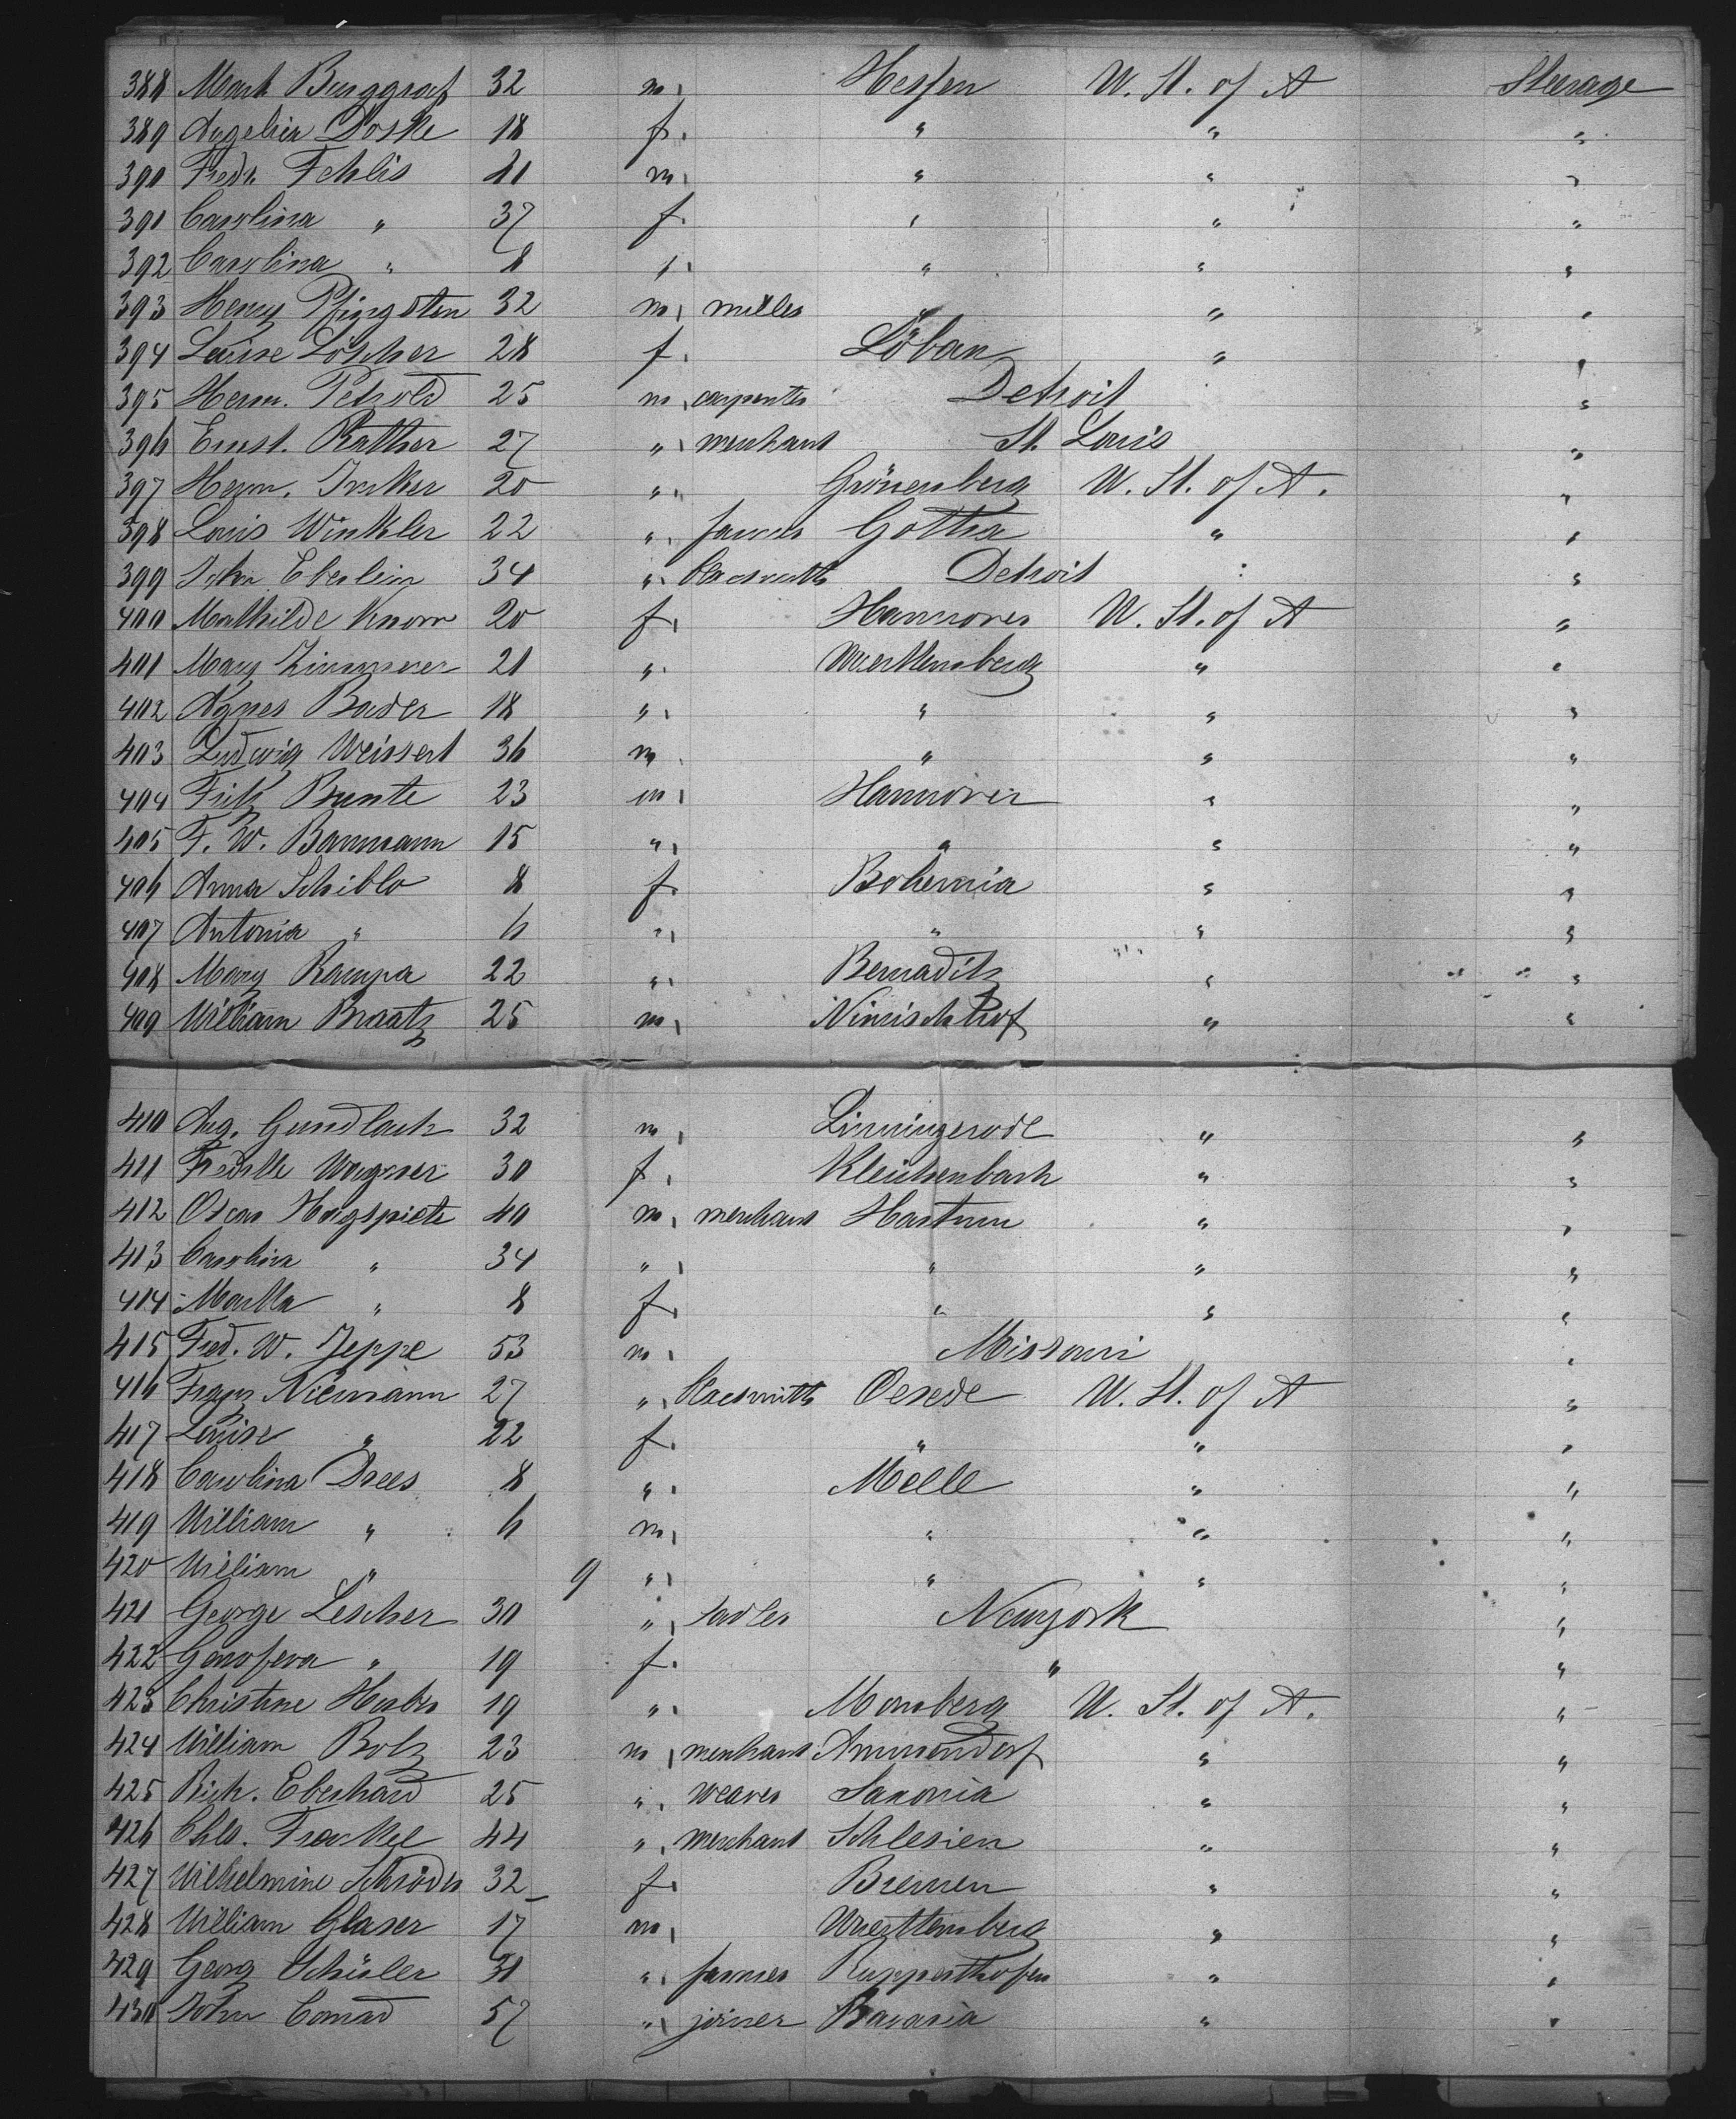 388 Mart. Burggraf 32 m. Hessen U. St. of A Steerage
389 Angelica Doske 18 f. " " "
390 Fredr. Fehlis 41 m. " " "
391 Carolina " 37 f. " " "
392 Carolina " 8 f. " " "
393 Henry Pfingsten 32 m. miller " " "
394 Louise Löscher 28 f. Löbau " "
395 Herm. Petzold 25 m. carpenter Detroit "
396 Ernst. Rather 27 " merchant St. Louis "
397 Herm. 20 " Grönenberg U. St. of A. "
398 Louis Winkler 22 " farmer Gotha " "
399 John Eberlein 34 " blacsmith Detroit "
400 Mathilde Knorr 20 f. Hannover U. St. of A "
401 Mary Zimmerer 21 " Wuerttemberg " "
402 Agnes Bader 18 " " " "
403 Ludwig Weissert 36 m. " " "
404 Fritz Bunte 23 m. Hannover " "
405 F. W. Baumann 15 " " " "
406 Anna Schiblo 8 f. Bohemia " "
407 Antonia " 6 " " " "
408 Mary Rampa 22 " Bernaditz " "
409 William Braatz 25 m. Nimischhof " "
410 Aug. Gundlach 32 m. Linningerode " "
411 Fredrke Wagner 30 f. Kleichenbach " "
412 Oscar Hugspiets 40 m. merchant Hastum " "
413 Carolina " 34 " " " "
414 Martha " 8 f. " " "
415 Fred. W. Jeppe 53 m. Missouri "
416 Franz Niemann 27 " blacsmith Oesede U. St. of A "
417 Louise " 22 f. " " "
418 Carolina Drees 8 " Melle " "
419 William " 6 m. " " "
420 William " 9 " " " "
421 George Lescher 30 " sadler Newyork "
422 Genofeva " 19 f. " "
423 Christine Huber 19 " Momberg U. St. of A. "
424 William Bolz 23 m. merchant Ammendorf " "
425 Rich. Eberhard 25 " weaver Saxonia " "
426 Chls. Frankel 44 " merchant Schlesien " "
427 Wilhelmine Schröder 32 f. Bremen " "
428 William Glaser 17 m. Wuerttemberg " "
429 Georg Schüler 31 " farmer Rupperthofen " "
430 John Conrad 57 " joiner Bavaria " "